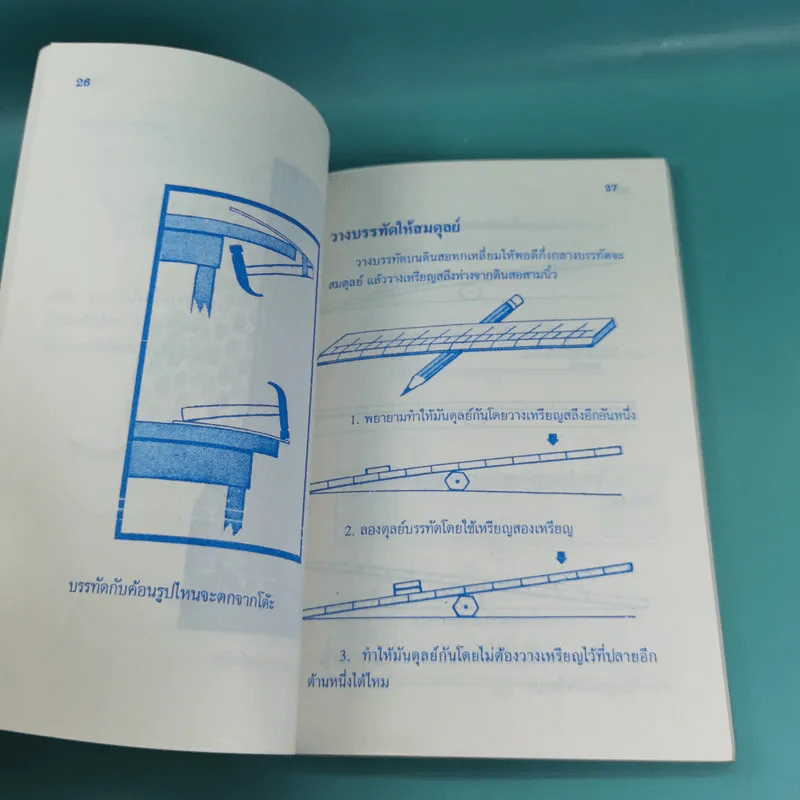 26
บรรทัดกับค้อนรูปไหนจะตกจากโต๊ะ
27
วางบรรทัดให้สมดุลย์
วางบรรทัดบนดินสอหกเหลี่ยมให้พอดีกึ่งกลางบรรทัดจะ
สมดุลย์ แล้ววางเหรียญสลึงห่างจากดินสอสามนิ้ว
1. พยายามทำให้มันดุลย์กันโดยวางเหรียญสลึงอีกอันหนึ่ง
2. ลองดุลย์บรรทัดโดยใช้เหรียญสองเหรียญ
3. ทำให้มันดุลย์กันโดยไม่ต้องวางเหรียญไว้ที่ปลายอีก
ด้านหนึ่งได้ไหม